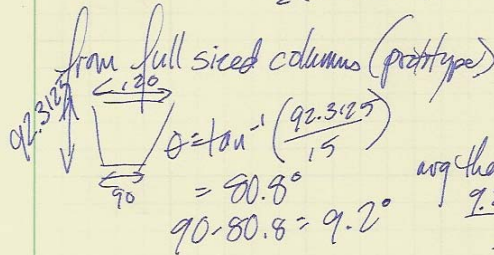 from full sized columns (prototype)
120
92.3125
θ = tan⁻¹ (92.3125/15)
90
= 80.8°
90-80.8 = 9.2°
avg the